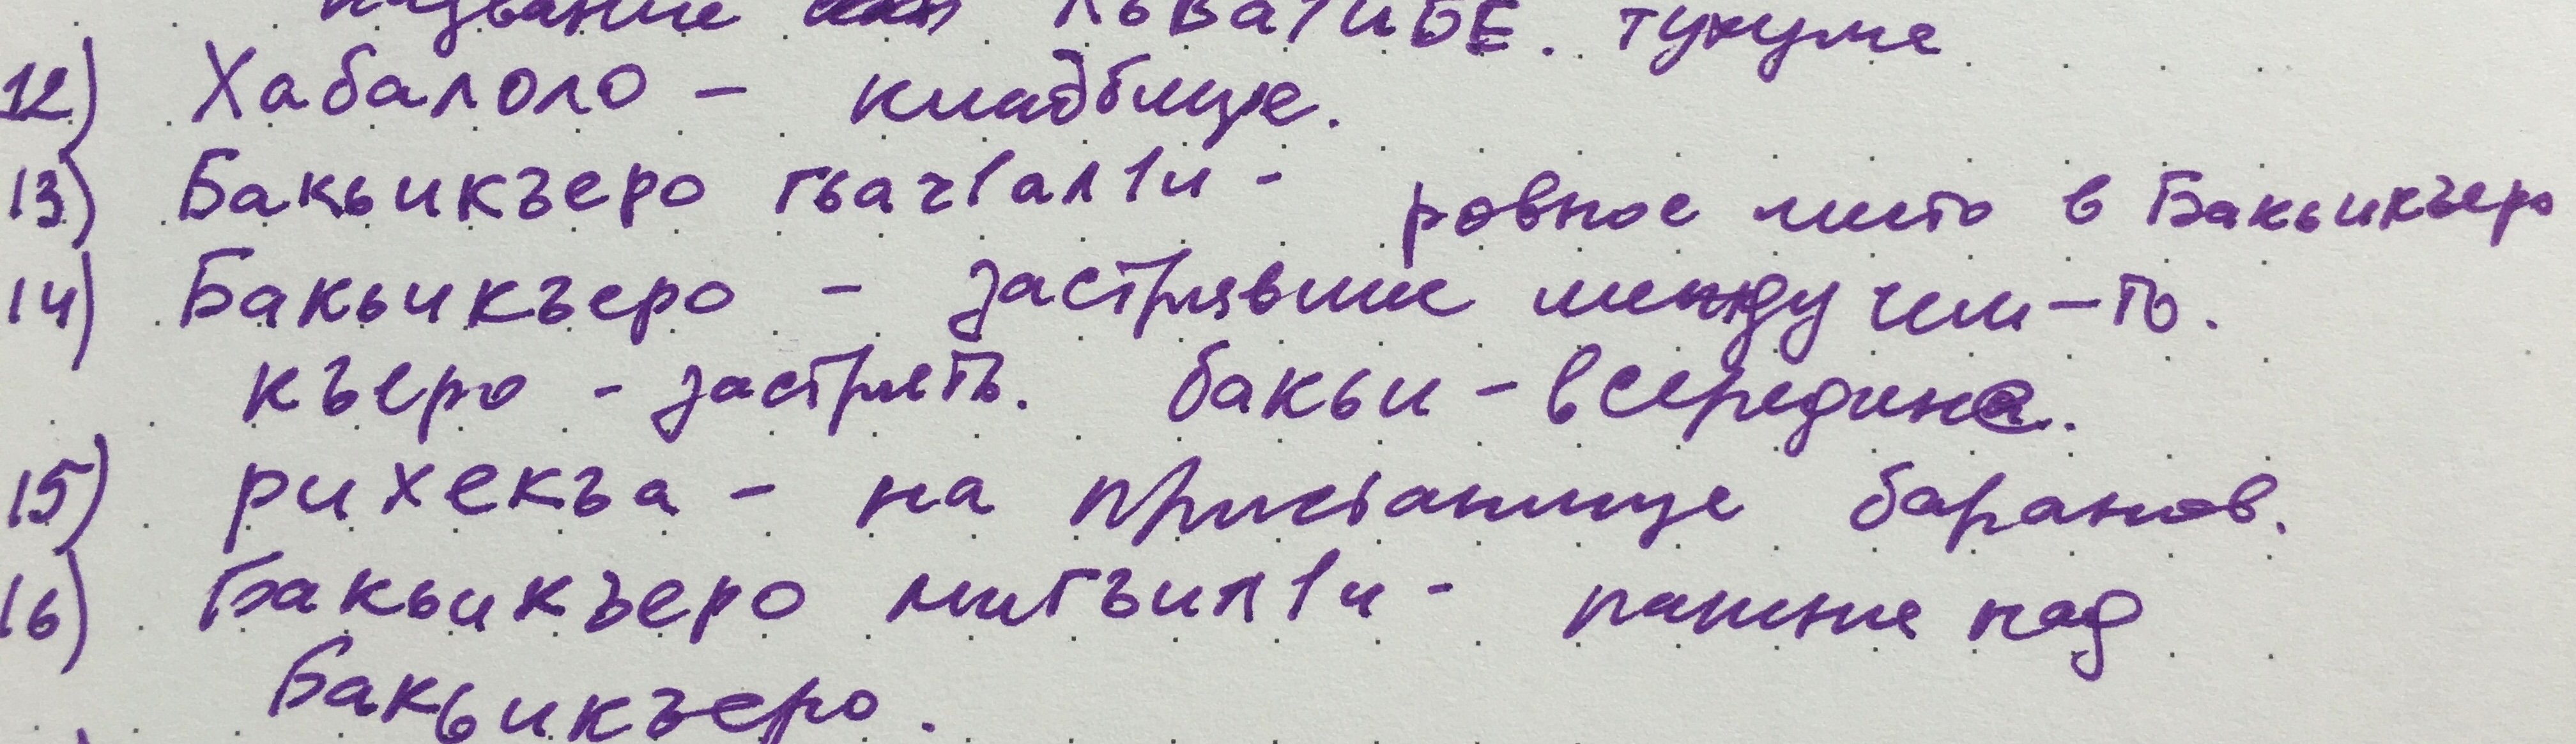 название КЬВАТИБЕ. тухуме
12) Хабалоло - кладбище.
13) Бакьикъеро гьач1ал1и - ровное место в Бакьикъеро
14) Бакьикъеро - застрявшие между чем-то.
къеро - застрять. бакьи - в середине.
15) рихекъа - на пристанище баранов.
16) Бакьикъеро мигъил1и - пашни над
Бакьикъеро.